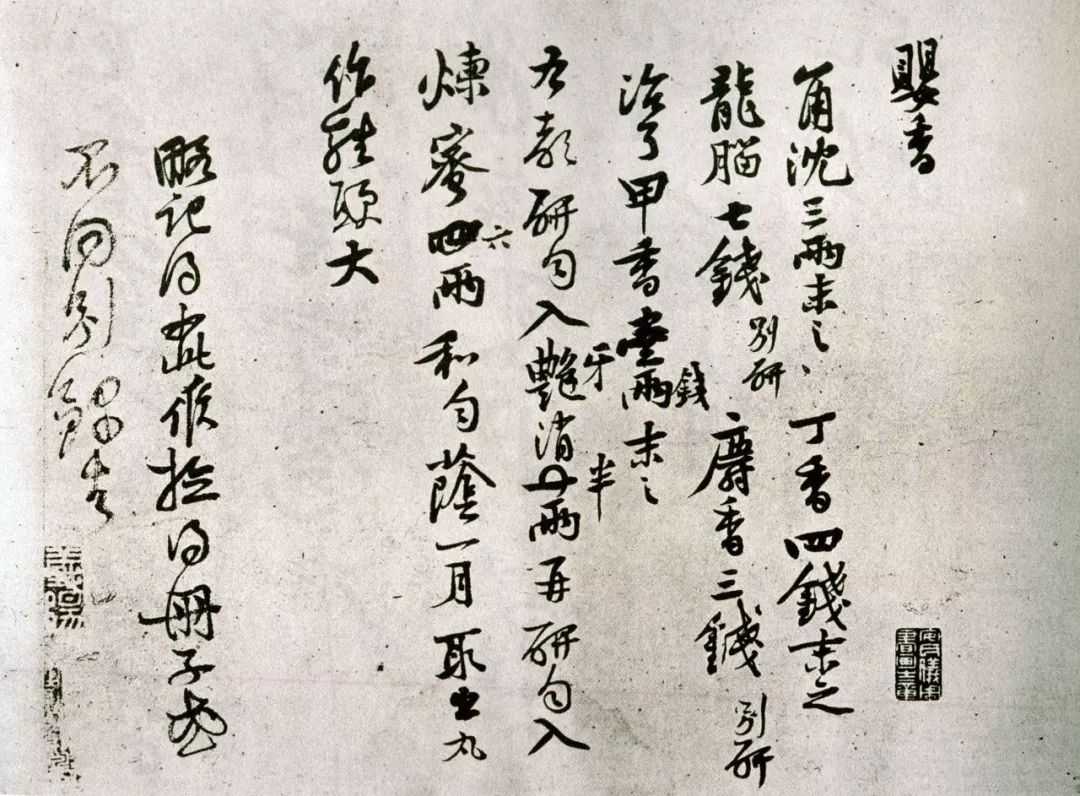 嬰香
角沈三兩末之丁香四錢末之
龍腦七錢別研麝香三錢別研
治了甲香壹錢末之
右都研勻入牙消半兩再研勻入
煉蜜六兩和勻蔭一月取出丸
作雞頭大
略記得此候撿得冊子或
不同別錄去